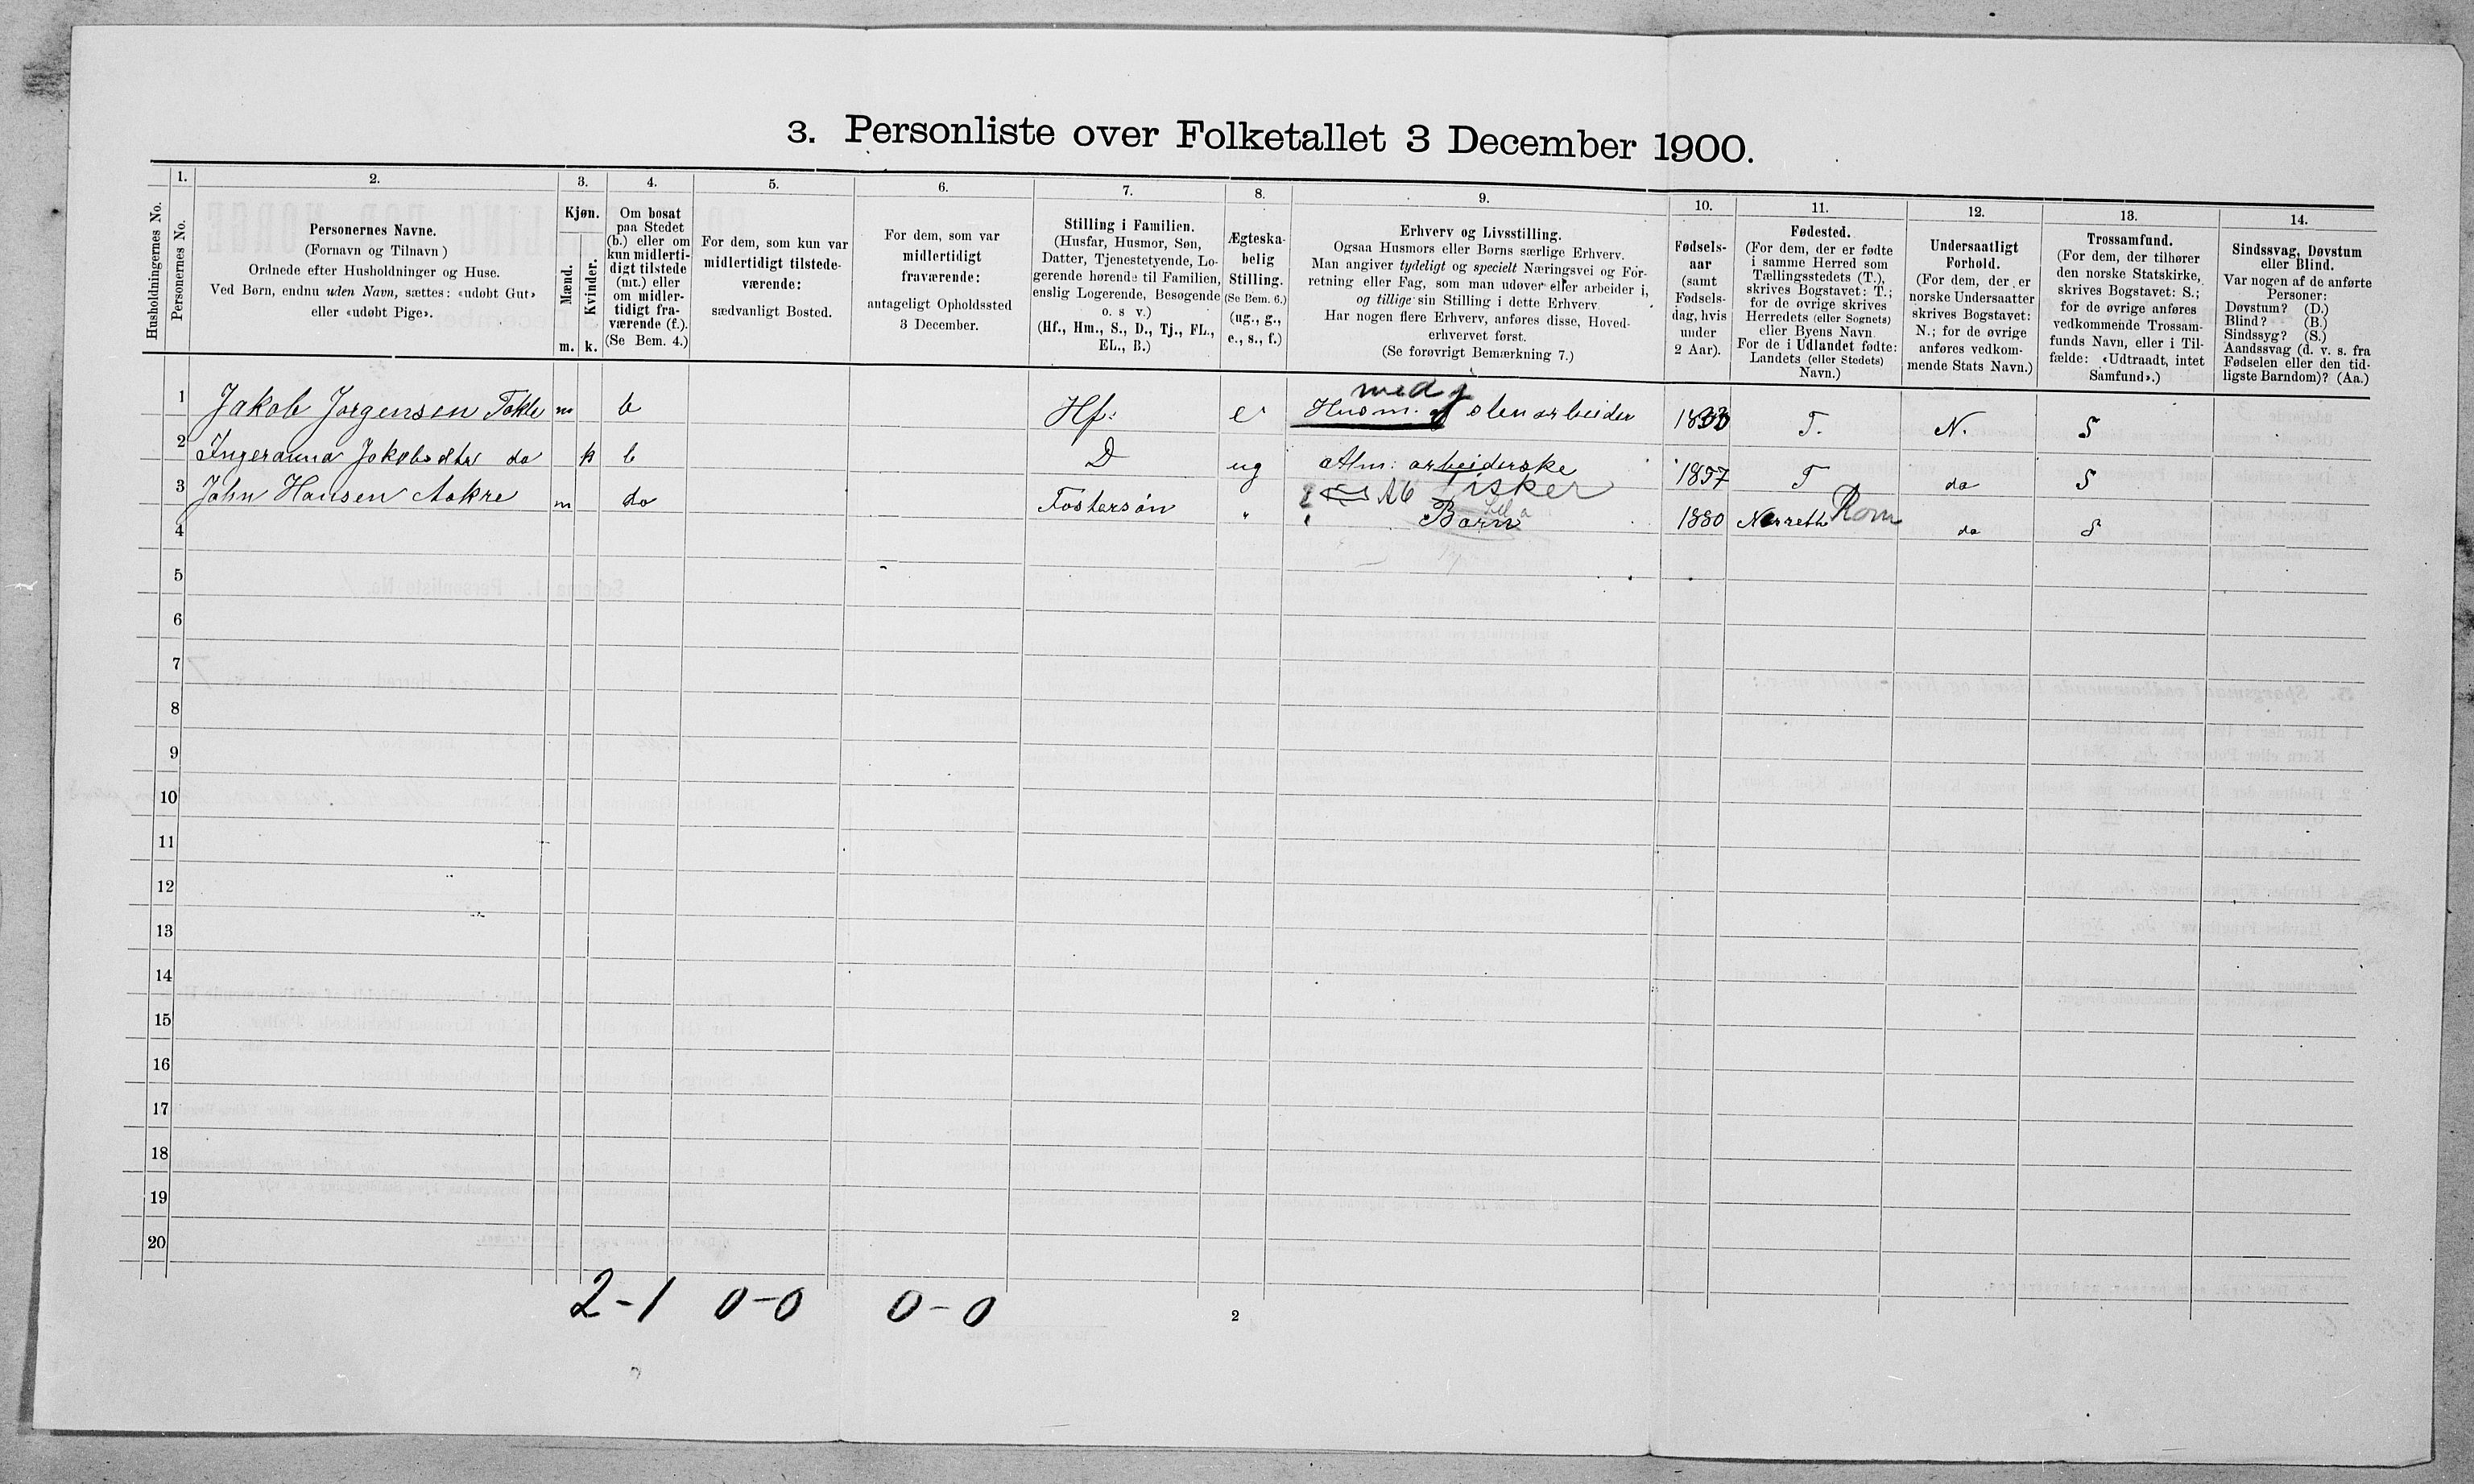 3. Personliste over Folketallet 3 December 1900.
Husholdningernes No.
1.
Personernes No.
2.
Personernes Navne.
(Fornavn og Tilnavn)
Ordnede efter Husholdninger og Huse.
Ved Børn, endnu uden Navn, sættes: «udøbt Gut»
eller «udøbt Pige».
3.
Kjøn.
Mænd.
Kvinder.
m.
k.
4.
Om bosat
paa Stedet
(b.) eller om
kun midlerti-
digt tilstede
(mt.) eller
om midler-
tidigt fra-
værende (f.).
(Se Bem. 4.)
5.
For dem, som kun var
midlertidigt tilstede-
værende:
sædvanligt Bosted.
6.
For dem, som var
midlertidigt
fraværende:
antageligt Opholdssted
3 December.
7.
Stilling i Familien.
(Husfar, Husmor, Søn,
Datter, Tjenestetyende, Lo-
gerende hørende til Familien,
enslig Logerende, Besøgende
o. s v.)
(Hf., Hm., S., D., Tj., FL.,
EL., B.)
8.
Ægteska-
belig
Stilling.
(Se Bem. 6.)
(ug., g.,
e., s., f.)
9.
Erhverv og Livsstilling.
Ogsaa Husmors eller Børns særlige Erhverv.
Man angiver tydeligt og specielt Næringsvei og For-
retning eller Fag, som man udøver eller arbeider i,
og tillige sin Stilling i dette Erhverv.
Har nogen flere Erhverv, anføres disse, Hoved-
erhvervet først.
(Se forøvrigt Bemærkning 7.)
10.
Fødsels-
aar
(samt
Fødsels-
dag, hvis
under
2 Aar).
11.
Fødested.
(For dem, der er fødte
i samme Herred som
Tællingsstedets (T.),
skrives Bogstavet: T.;
for de øvrige skrives
Herredets (eller Sognets)
eller Byens Navn
For de i Udlandet fødte:
Landets (eller Stedets)
Navn.)
12.
Undersaatligt
Forhold.
(For dem, der er
norske Undersaatter
skrives Bogstavet:
N.; for de øvrige
anføres vedkom-
mende Stats Navn.)
13.
Trossamfund.
(For dem, der tilhører
den norske Statskirke,
skrives Bogstavet: S.;
for de øvrige anføres
vedkommende Trossam-
funds Navn, eller i Til-
fælde: «Udtraadt, intet
Samfund».)
14.
Sindssvag, Døvstum
eller Blind.
Var nogen af de anførte
Personer:
Døvstum? (D.)
Blind? (B.)
Sindssyg? (S.)
Aandssvag (d. v. s. fra
Fødselen eller den tid-
ligste Barndom)? (Aa.)
med j
1 Jakob Jørgensen Tokle m b Hf: e Husm. stenarbeider T. N. S
2 Ingeranna Jakobsdtr do k b D ug Alm: arbeiderske 1857 T do S
Fisker
3 John Hansen Aakre m do Fostersøn " Barn 1880 Rom do S
4
5
6
7
8
9
10
11
12
13
14
15
16
17
18
19
20
2-1 0-0 0-0
2